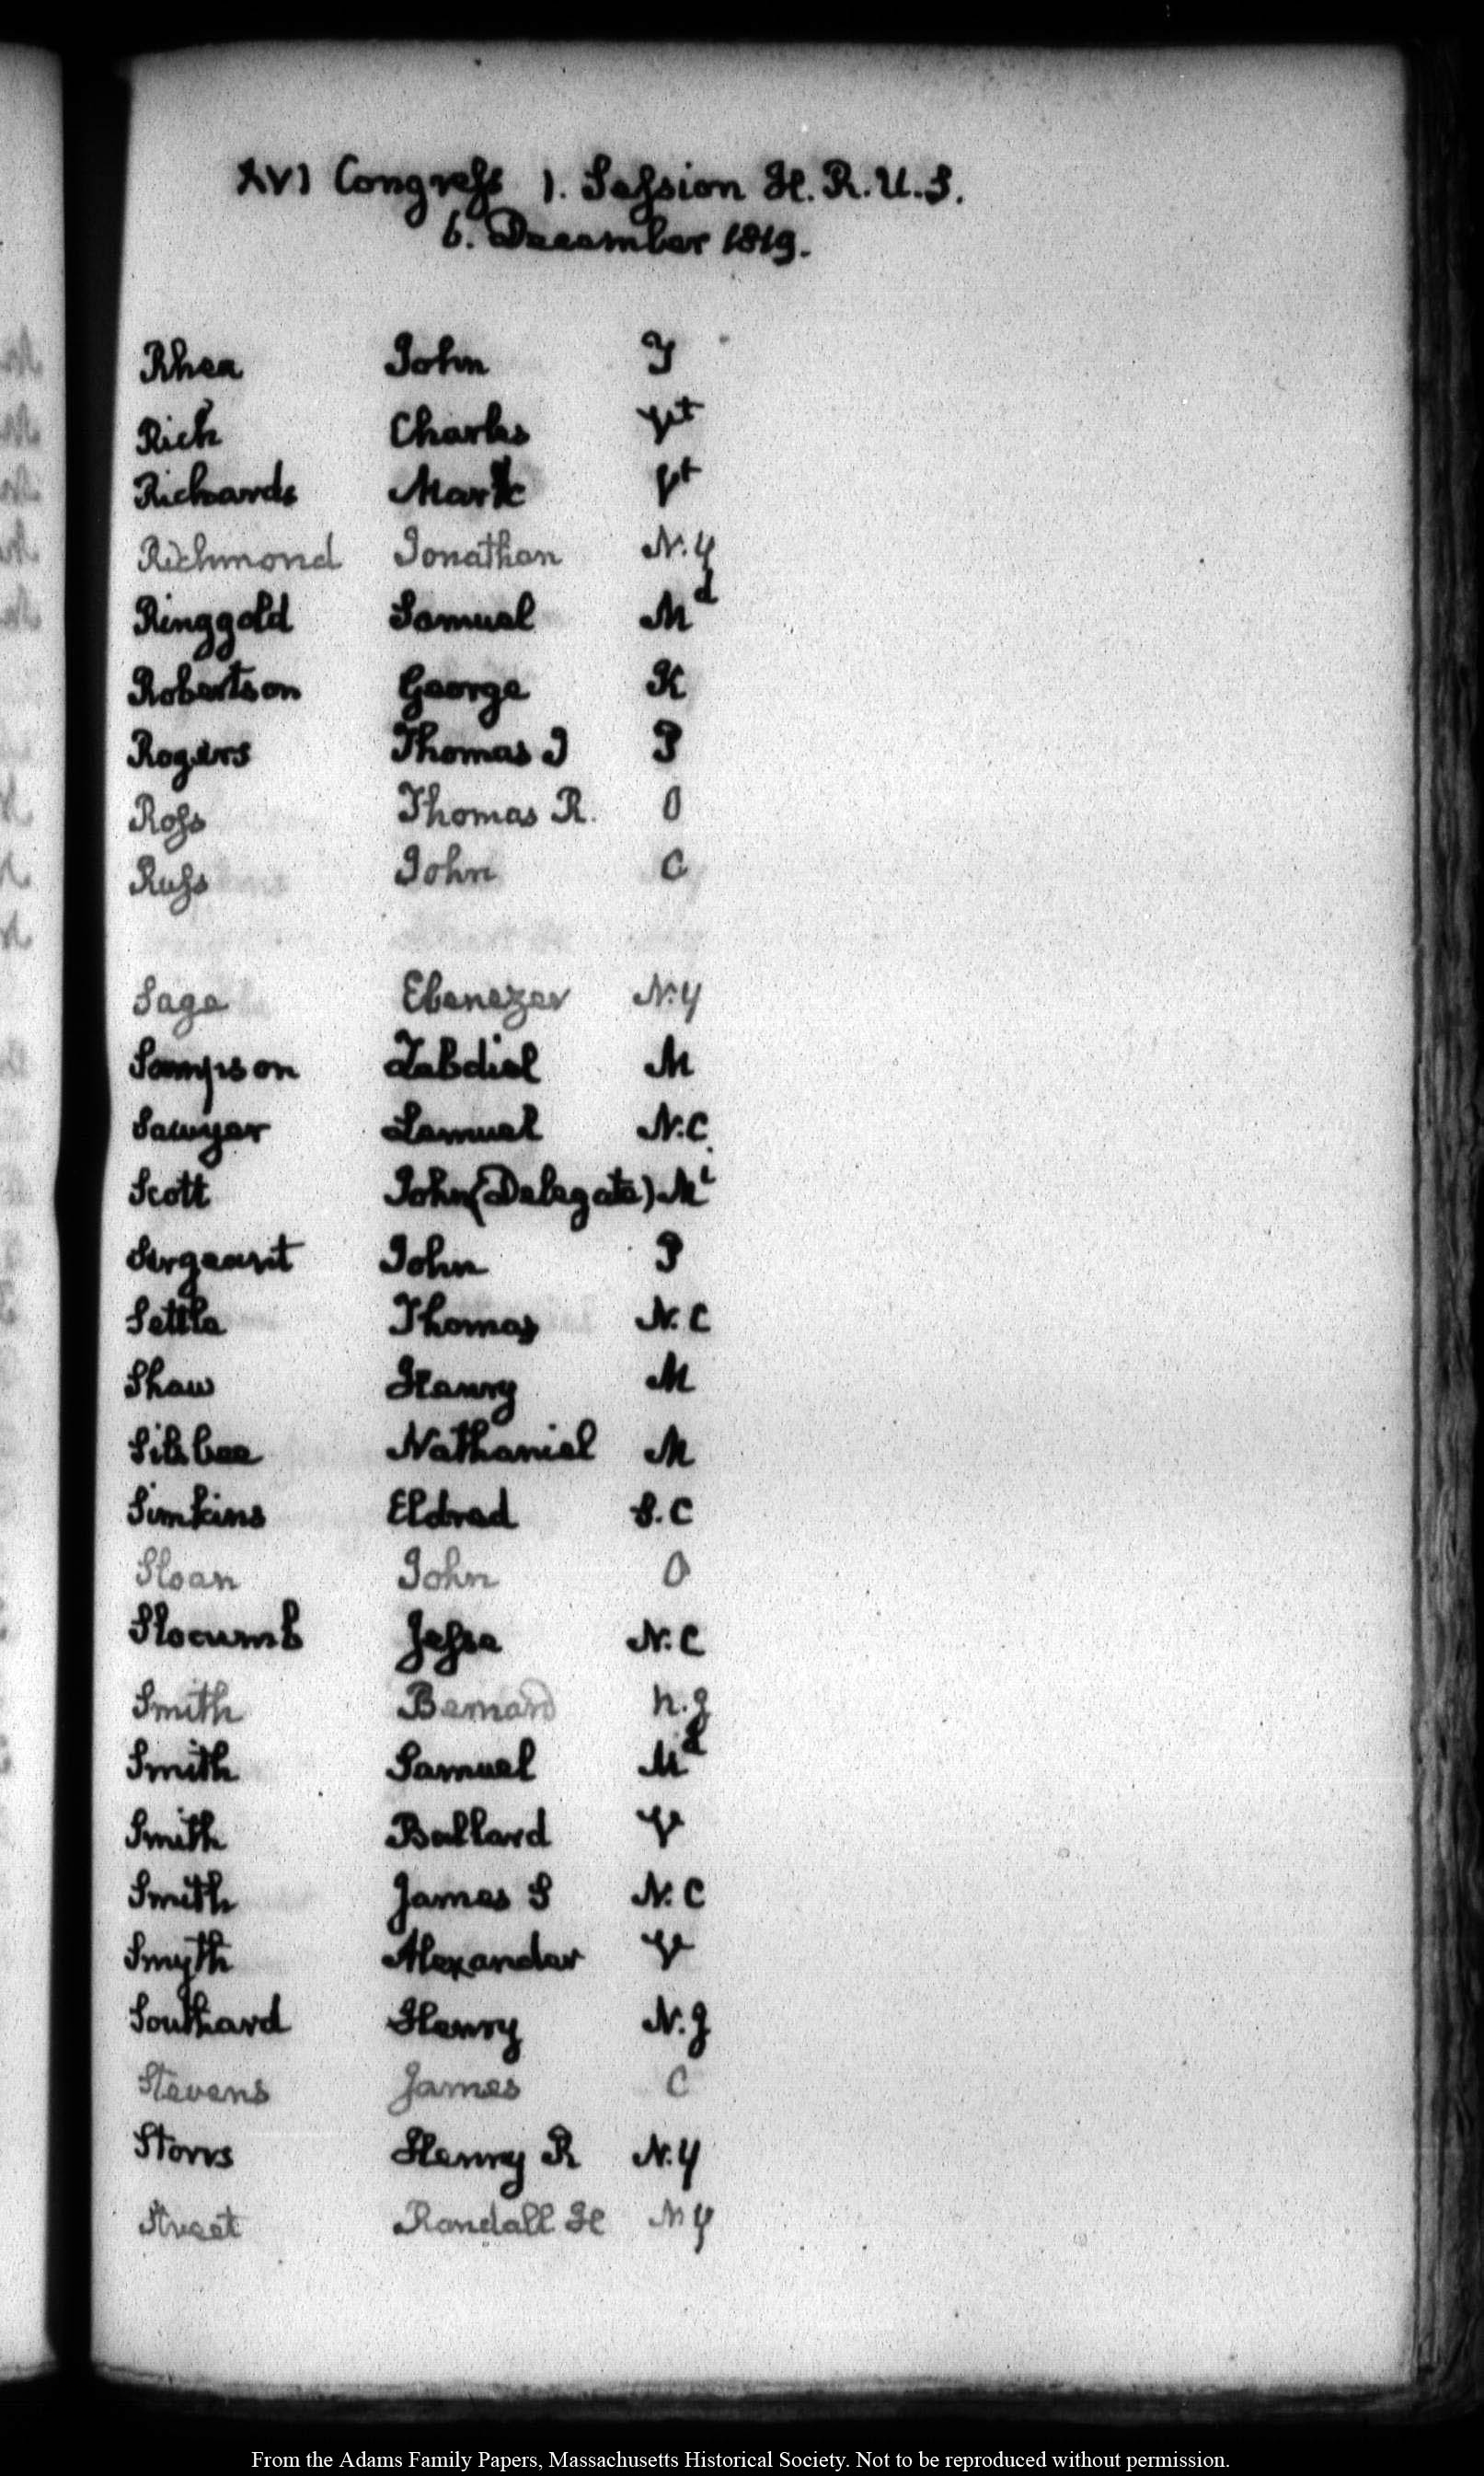 XVI Congress 1. Session H. R. U. S.
6. December 1819.
Rhea John T
Rich Charles Vt
Richards Mark Vt
Richmond Jonathan N.Y
Ringgold Samuel Md
Robertson George K
Rogers Thomas J P
Ross Thomas R. O
Russ John C
Sage Ebenezer N.Y
Sampson Zabdiel M
Sawyer Lemuel N.C.
Scott John (Delegate) Mi
Sergeant John P
Settle Thomas N.C
Shaw Henry M
Silsbee Nathaniel M
Simkins Eldred S.C
Sloan John O
Slocumb Jesse N.C
Smith Bernard N.J
Smith Samuel Md
Smith Ballard V
Smith James S N.C
Smyth Alexander V
Southard Henry N.J
Stevens James C
Storrs Henry R N.Y
Street Randall H N Y
From the Adams Family Papers, Massachusetts Historical Society. Not to be reproduced without permission.